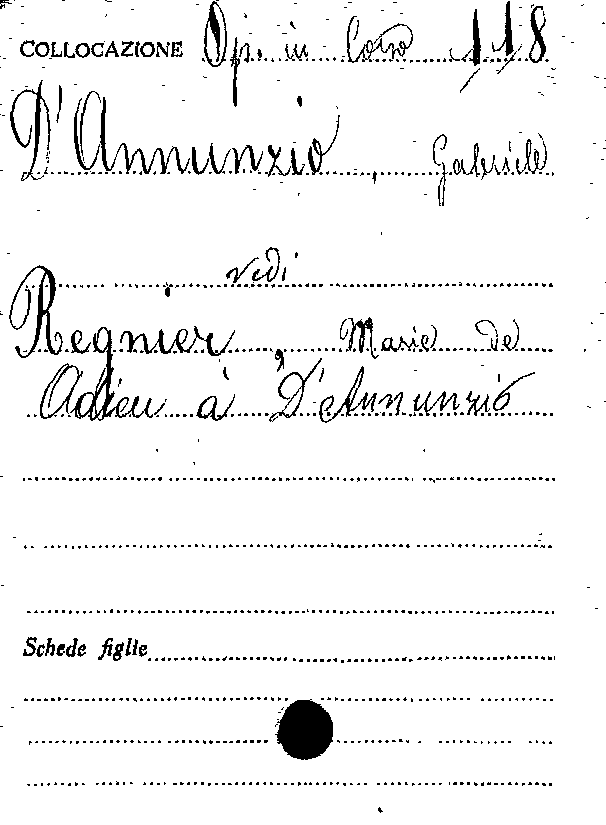 COLLOCAZIONE Op. in Corso 118
D'Annunzio, Gabriele
vedi
Regnier, Marie de
Adieu à D'Annunzio
Schede figlie